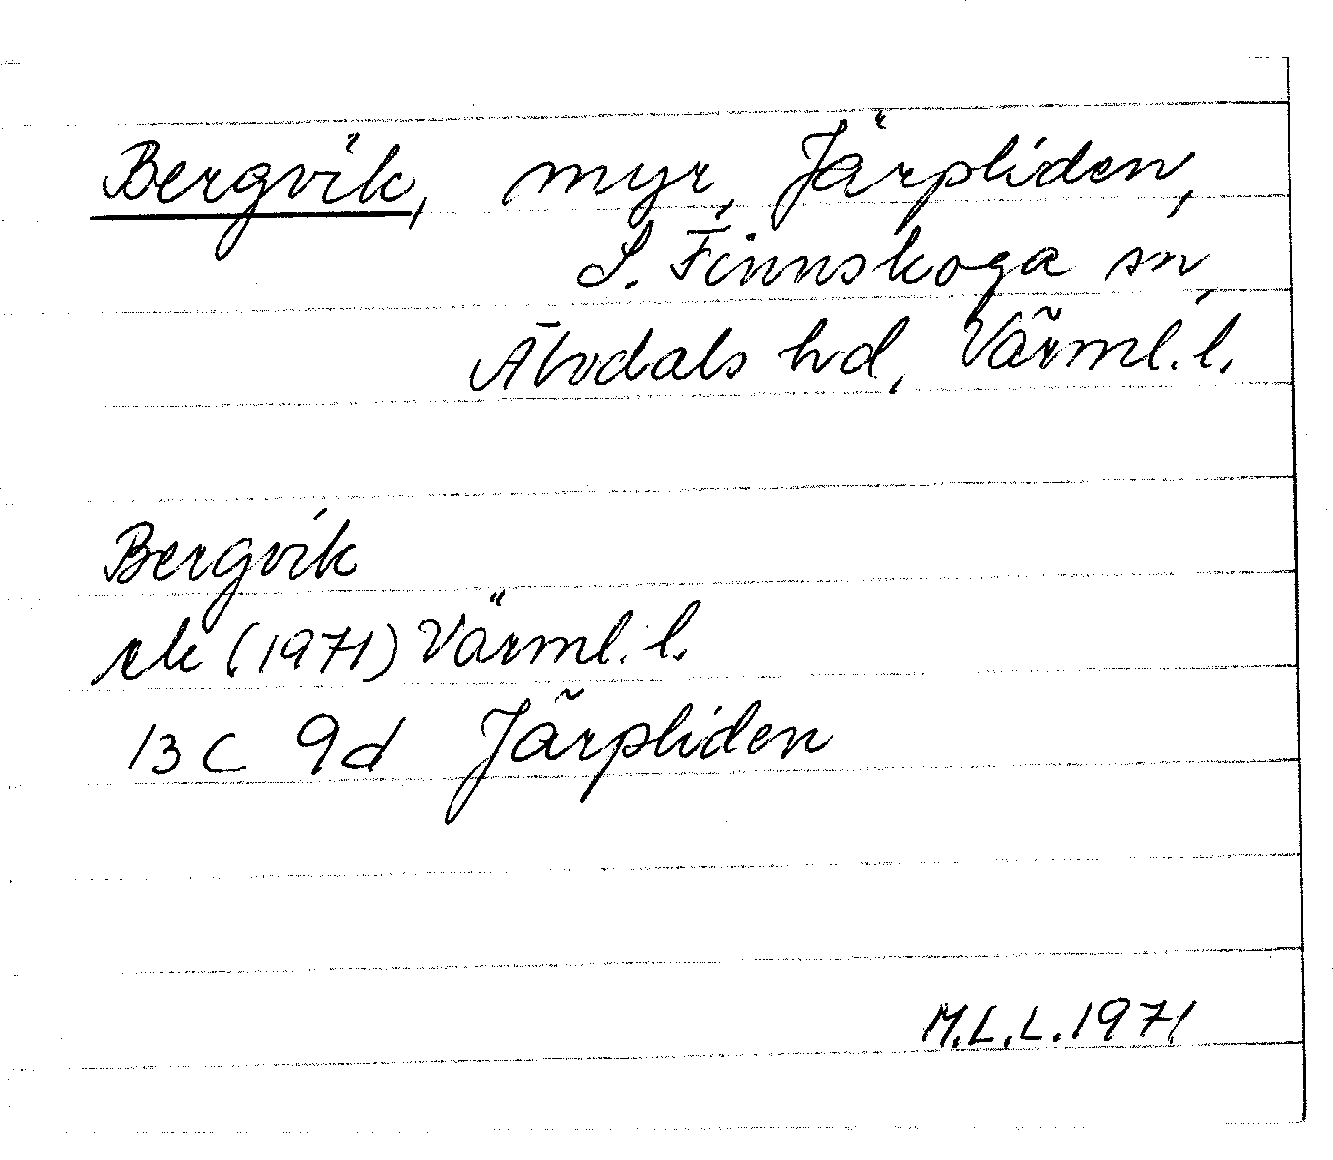 Bergvik, myr, Järpliden,
S. Finnskoga sn,
Älvdals hd, Värml. l.
Bergvik
rk (1971) Värml. l.
13 C 9d Järpliden
M.L.L. 1971